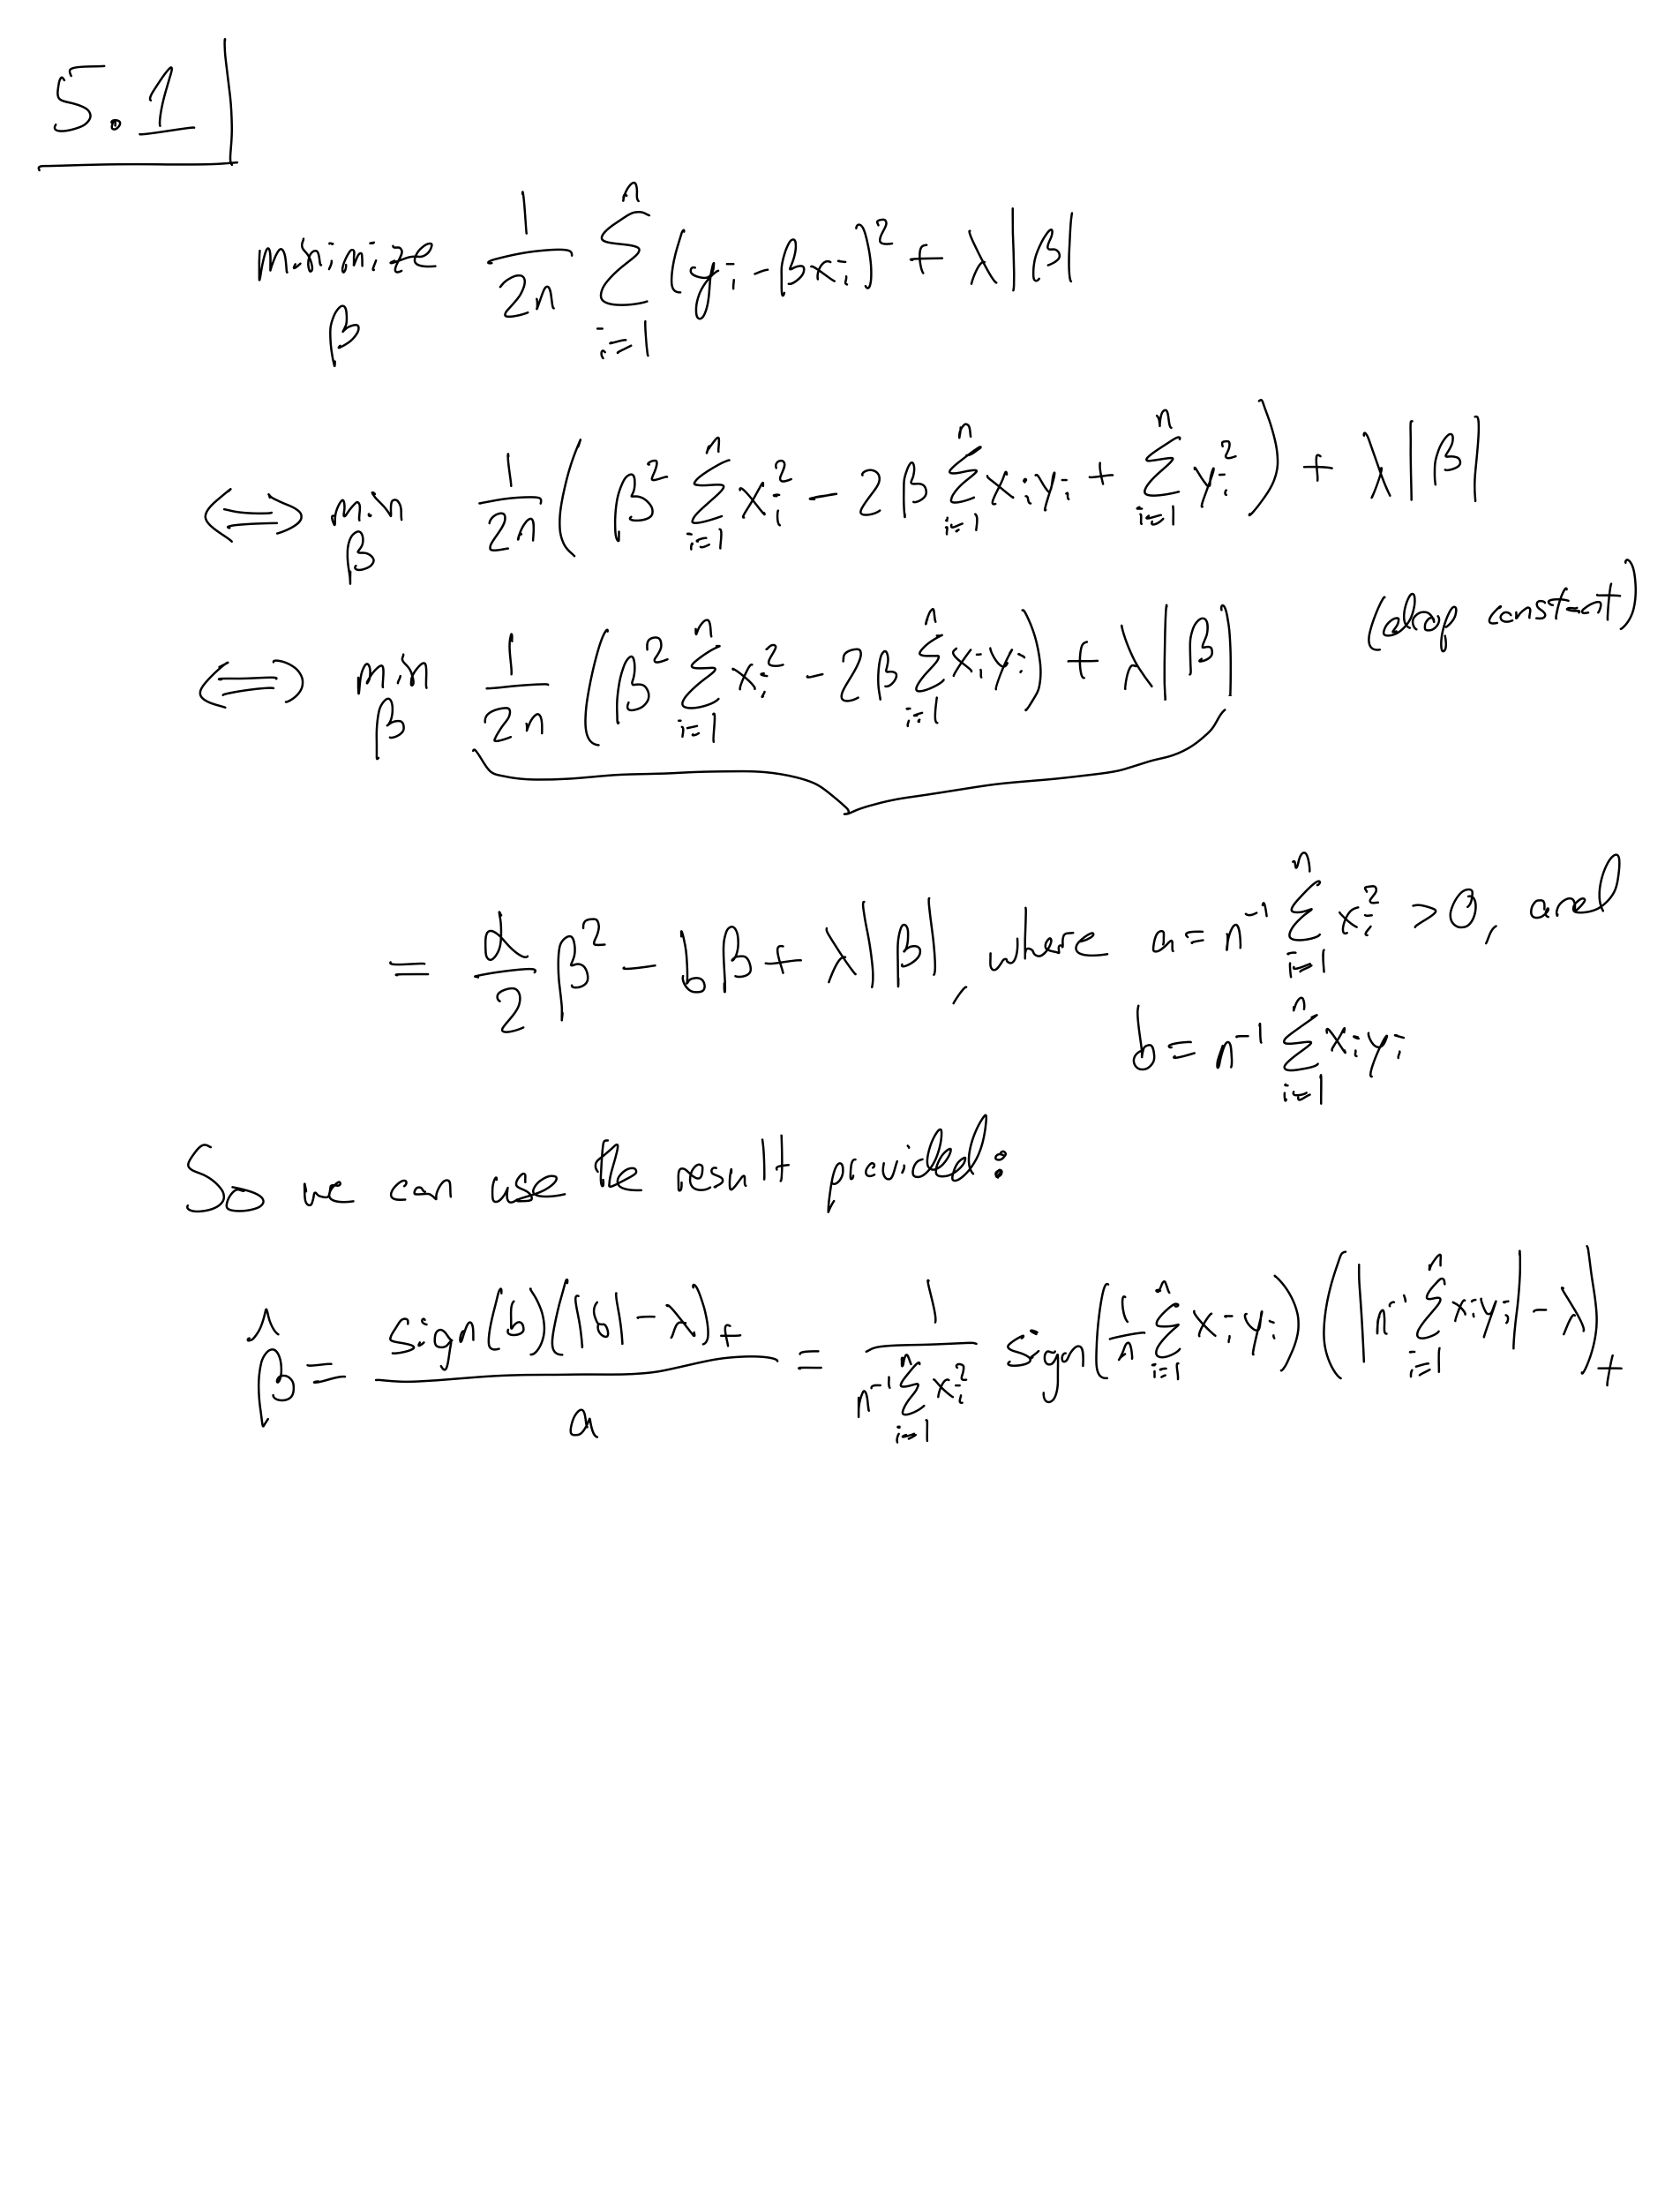 5.1
minimize 1/(2n) ∑_{i=1}^{n} (y_i - βx_i)² + λ|β|
β
⟺ min_β 1/(2n) ( β² ∑_{i=1}^{n} x_i² - 2β ∑_{i=1}^{n} x_i y_i + ∑_{i=1}^{n} y_i² ) + λ|β|
(drop constant)
⟺ min_β 1/(2n) ( β² ∑_{i=1}^{n} x_i² - 2β ∑_{i=1}^{n} x_i y_i ) + λ|β|
= a/2 β² - bβ + λ|β|, where a = n⁻¹ ∑_{i=1}^{n} x_i² > 0, and
b = n⁻¹ ∑_{i=1}^{n} x_i y_i
So we can use the result provided:
β̂ = sign(b)(|b| - λ)₊ / a = 1/(n⁻¹ ∑_{i=1}^{n} x_i²) sign(1/n ∑_{i=1}^{n} x_i y_i) (|n⁻¹ ∑_{i=1}^{n} x_i y_i| - λ)₊